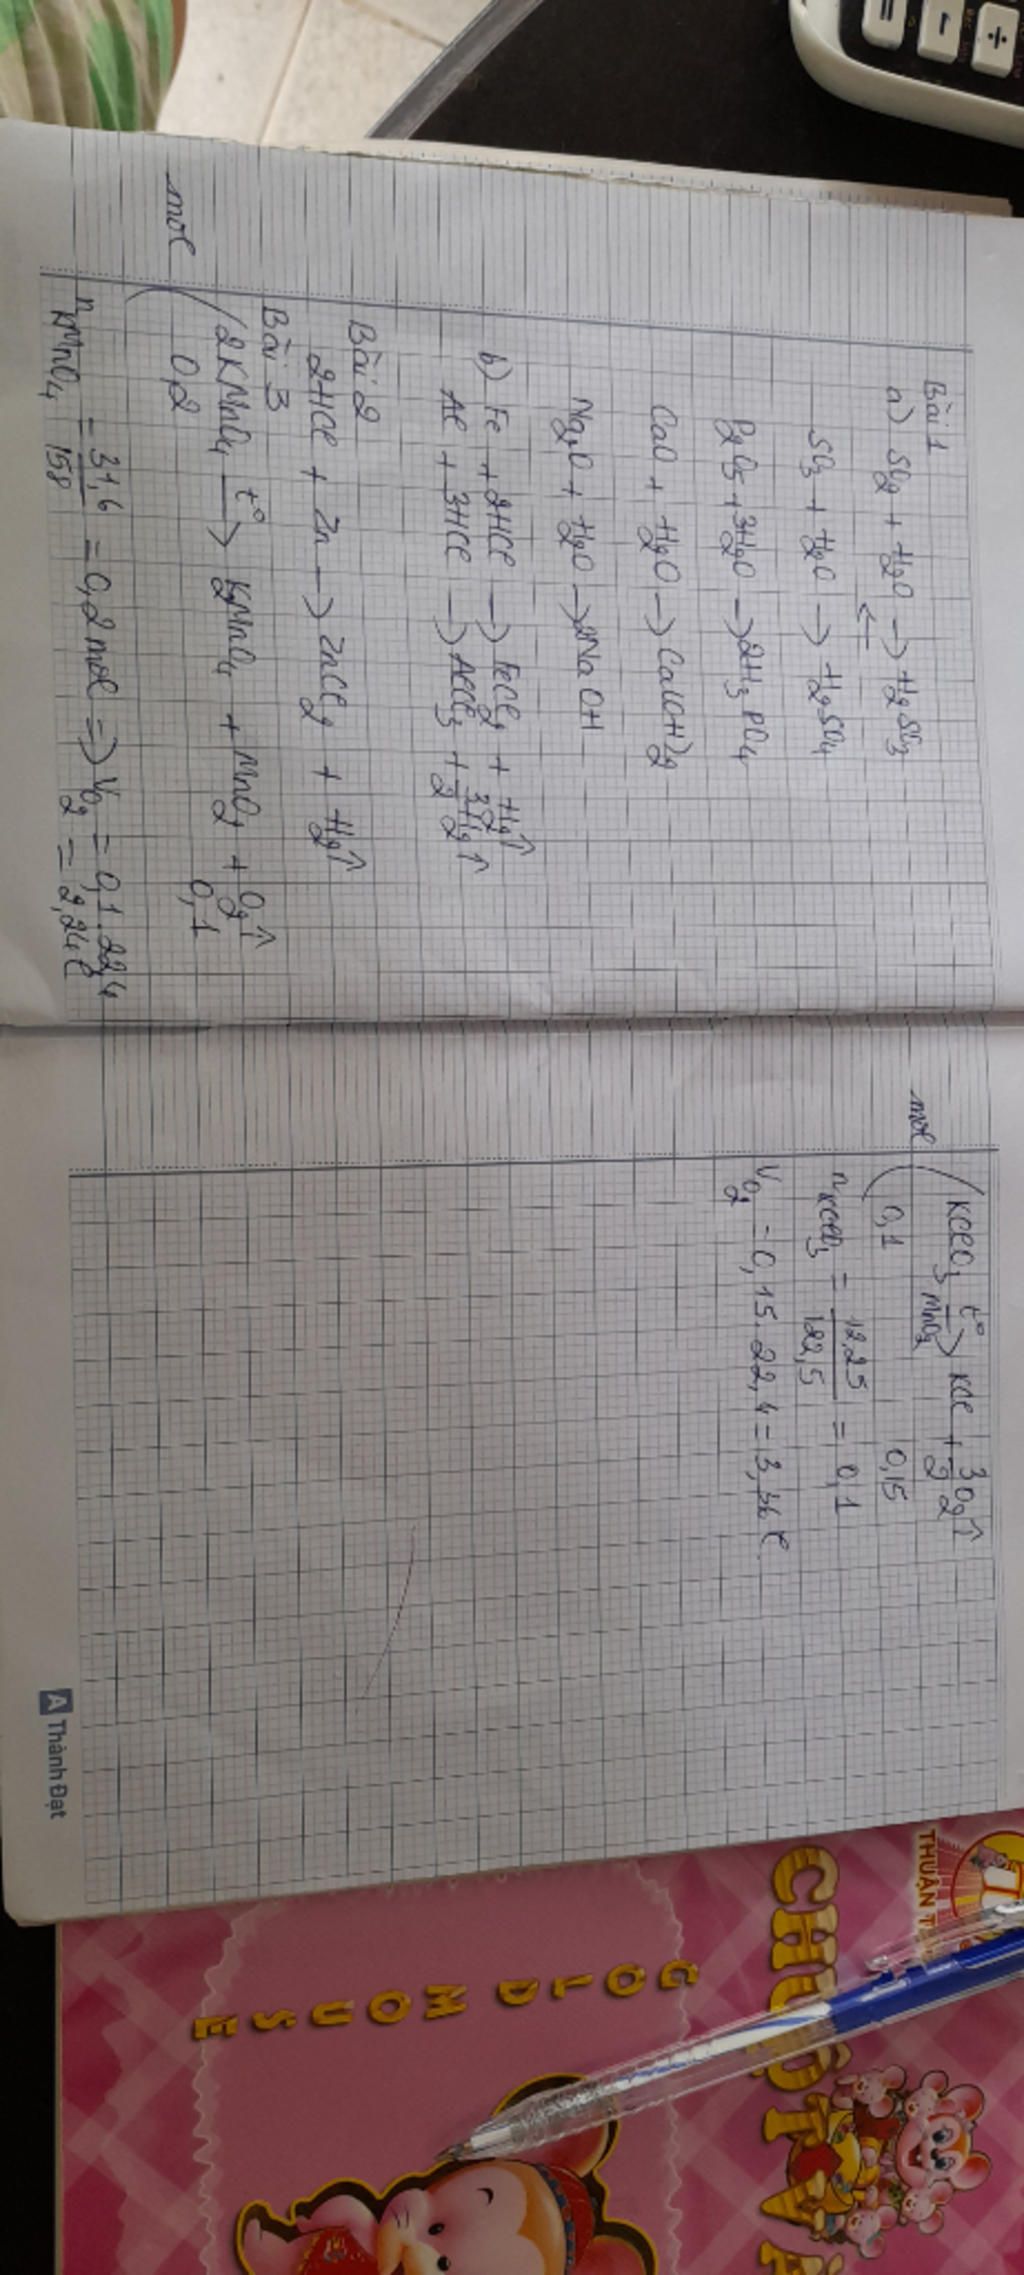 Bài 1
a) SO2 + H2O ⇄ H2SO3
SO3 + H2O → H2SO4
P2O5 + 3H2O → 2H3PO4
CaO + H2O → Ca(OH)2
Na2O + H2O → 2NaOH
b) Fe + 2HCl → FeCl2 + H2↑
Al + 3HCl → AlCl3 + 3/2 H2↑
Bài 2
2HCl + Zn → ZnCl2 + H2↑
Bài 3
2KMnO4 t° → K2MnO4 + MnO2 + O2↑
mol 0,2 0,1
nKMnO4 = 31,6/158 = 0,2 mol => VO2 = 0,1.22,4
= 2,24l
KClO3 t° → MnO2 KCl + 3/2 O2↑
mol 0,1 0,15
nKClO3 = 12,25/122,5 = 0,1
VO2 = 0,15.22,4 = 3,36l
A Thành Đạt
THUẬN T
GOLD MOUSE